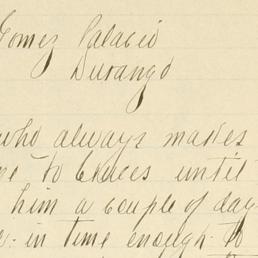 Gomez Palacio
Durango
who always makes
me to braces until
him a couple of day
in time enough to